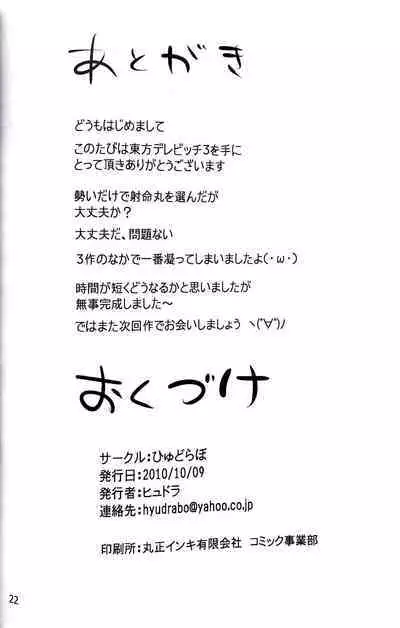 あとがき
どうもはじめまして
このたびは東方デレビッチ3を手に
とって頂きありがとうございます
勢いだけで射命丸を選んだが
大丈夫か？
大丈夫だ、問題ない
3作のなかで一番凝ってしまいましたよ(・ω・)
時間が短くどうなるかと思いましたが
無事完成しました～
ではまた次回作でお会いしましょう ヽ(ﾟ∀ﾟ)ﾉ
おくづけ
サークル：ひゅどらぼ
発行日：2010/10/09
発行者：ヒュドラ
連絡先：hyudrabo@yahoo.co.jp
印刷所：丸正インキ有限会社 コミック事業部
22